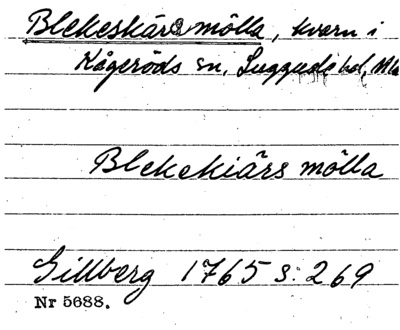 Blekeskärs mölla, kvarn i
Kågeröds sn, Luggude hd, Mlm
Blekekiärs mölla
Gillberg 1765 s. 269
Nr 5688.